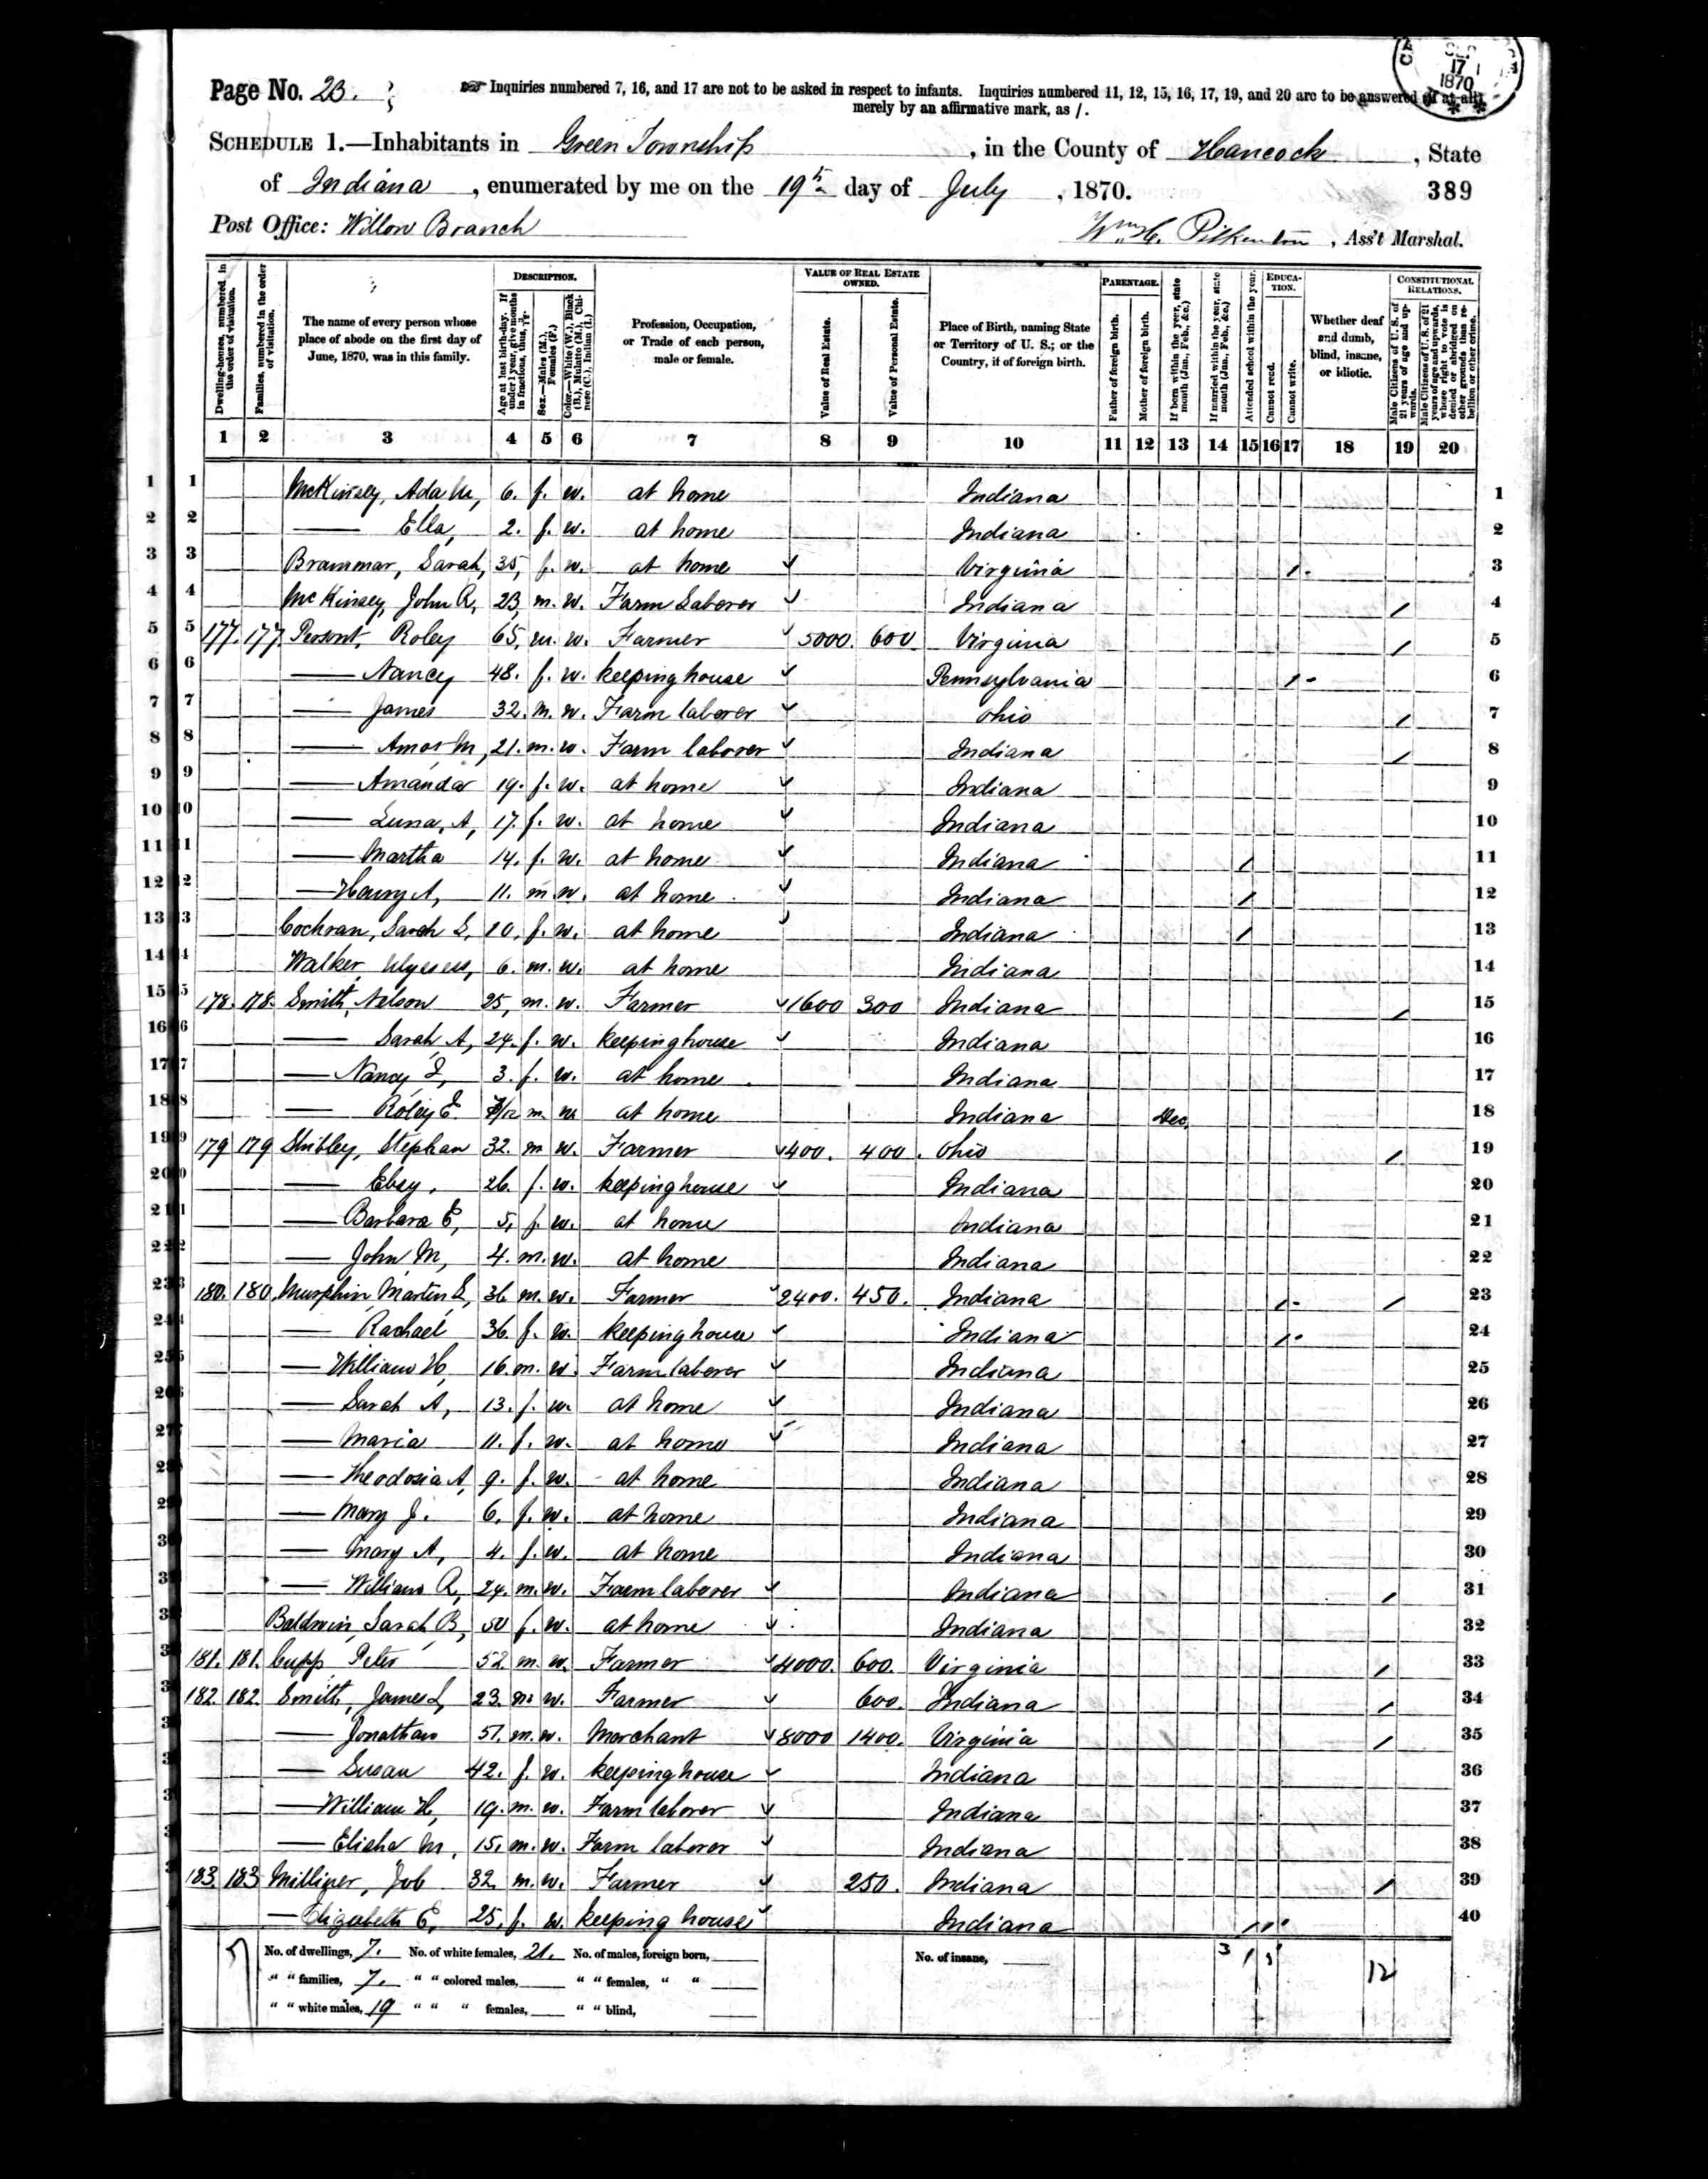 Page No. 23. Inquiries numbered 7, 16, and 17 are not to be asked in respect to infants. Inquiries numbered 11, 12, 15, 16, 17, 19, and 20 are to be answered (if at all)
merely by an affirmative mark, as /.
17
1870
SCHEDULE 1.—Inhabitants in Green Township, in the County of Hancock, State
of Indiana, enumerated by me on the 19th day of July, 1870. 389
Post Office: Willow Branch Wm. C. Pilkenton, Ass't Marshal.
Dwelling-houses, numbered in the order of visitation.
Families, numbered in the order of visitation.
The name of every person whose place of abode on the first day of June, 1870, was in this family.
DESCRIPTION.
Age at last birth-day. If under 1 year, give months in fractions, thus, 3/12.
Sex.—Males (M.), Females (F.)
Color.—White (W.), Black (B.), Mulatto (M.), Chinese (C.), Indian (I.)
Profession, Occupation, or Trade of each person, male or female.
VALUE OF REAL ESTATE OWNED.
Value of Real Estate.
Value of Personal Estate.
Place of Birth, naming State or Territory of U. S.; or the Country, if of foreign birth.
PARENTAGE.
Father of foreign birth.
Mother of foreign birth.
If born within the year, state month (Jan., Feb., &c.)
If married within the year, state month (Jan., Feb., &c.)
EDUCATION.
Attended school within the year.
Cannot read.
Cannot write.
Whether deaf and dumb, blind, insane, or idiotic.
CONSTITUTIONAL RELATIONS.
Male Citizens of U. S. of 21 years of age and upwards.
Male Citizens of U. S. of 21 years of age and upwards, whose right to vote is denied or abridged on other grounds than rebellion or other crime.
1 2 3 4 5 6 7 8 9 10 11 12 13 14 15 16 17 18 19 20
1 1 McKinsey, Ada M, 6. f. w. at home Indiana 1
2 2 — Ella, 2. f. w. at home Indiana 2
3 3 Brammar, Sarah, 35, f. w. at home Virginia / 3
4 4 McKinsey, John R, 23, m. w. Farm Laborer Indiana / 4
5 5 177. 177 Roley 65, m. w. Farmer 5000. 600. Virginia / 5
6 6 — Nancy 48. f. w. keeping house Pennsylvania / 6
7 7 — James 32. m. w. Farm laborer Ohio / 7
8 8 — Amos M, 21. m. w. Farm laborer Indiana / 8
9 9 — Amanda 19. f. w. at home Indiana 9
10 10 — Luna, A, 17. f. w. at home Indiana 10
11 11 — Martha 14. f. w. at home Indiana / 11
12 12 — A, 11. m. w. at home Indiana / 12
13 13 Cochran, Sarah L, 10, f. w. at home Indiana / 13
14 14 Walker, Ulysses, 6. m. w. at home Indiana 14
15 15 178. 178. Smith, Nelson 25, m. w. Farmer 1600 300 Indiana / 15
16 16 — Sarah A, 24. f. w. keeping house Indiana 16
17 17 — Nancy J, 3. f. w. at home Indiana 17
18 18 — Roley E. 7/12 m. w at home Indiana Dec. 18
19 19 179 179 Shibley, Stephan 32. m w. Farmer 400. 400. Ohio / 19
20 — Ebey, 26. f. w. keeping house Indiana 20
21 — Barbara E, 5, f. w. at home Indiana 21
22 — John M, 4. m. w. at home Indiana 22
23 180. 180. Murphin, Martin L, 36 m. w. Farmer 2400. 450. Indiana / / 23
24 — Rachael 36. f. w. keeping house Indiana / 24
25 — William H, 16. m. w. Farm laborer Indiana 25
26 — Sarah A, 13. f. w. at home Indiana 26
27 — Maria 11. f. w. at home Indiana 27
— Theodosia A, 9. f. w. at home Indiana 28
— Mary J. 6. f. w. at home Indiana 29
— Mary A, 4. f. w. at home Indiana 30
— William R, 24. m. w. Farm laborer Indiana / 31
Baldwin, Sarah B, 50 f. w. at home Indiana 32
181. 181. Cupp Peter 52 m. w. Farmer 4000. 600. Virginia / 33
182. 182. Smith, James L, 23. m w. Farmer 600. Indiana / 34
— Jonathan 51. m. w. Merchant 8000 1400. Virginia / 35
— Susan 42. f. w. keeping house Indiana 36
— William H, 19. m. w. Farm laborer Indiana 37
— Elisha M, 15. m. w. Farm laborer Indiana 38
183. 183 Milliner, Job 32. m. w. Farmer 250. Indiana / 39
— Elizabeth E, 25. f. w. keeping house Indiana / / 40
No. of dwellings, 7. No. of white females, 21. No. of males, foreign born, No. of insane, 3 12
" " families, 7. " " colored males, " " females, " "
" " white males, 19 " " " females, " " blind,